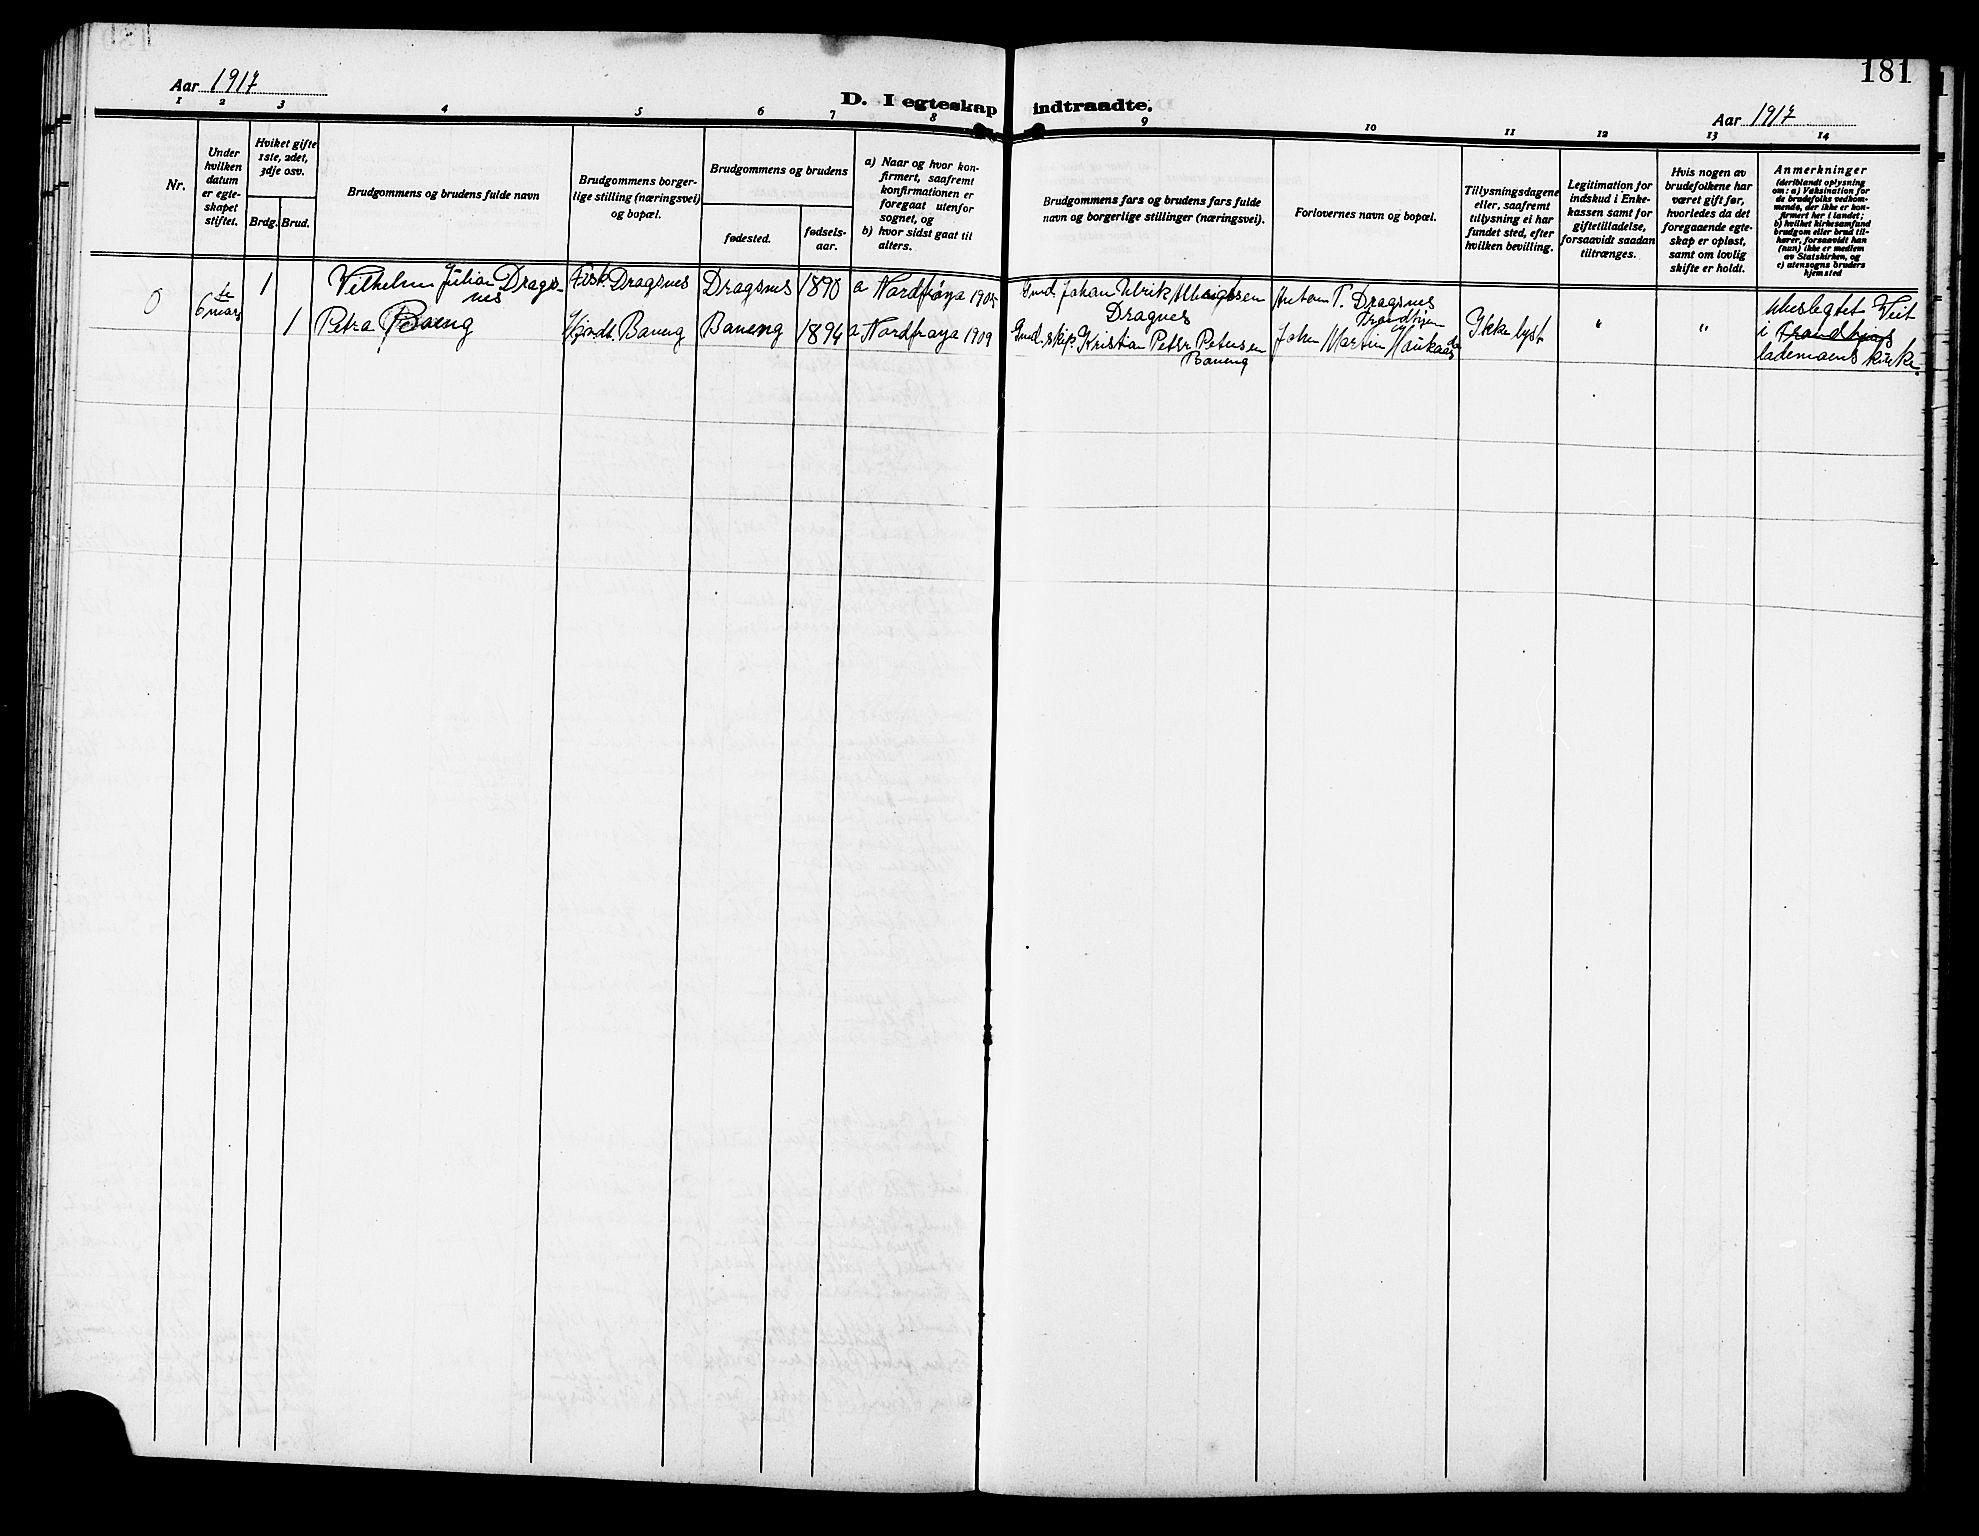 181
Aar 1917
D. I egteskap indtraadte.
Aar 1917
1 2 3 4 5 6 7 8 9 10 11 12 13 14
Nr.
Under
hvilken
datum
er egte-
skapet
stiftet.
Hviket gifte
1ste, 2det,
3dje osv.
Brdg. Brud.
Brudgommens og brudens fulde navn
Brudgommens borger-
lige stilling (næringsvei)
og bopæl.
Brudgommens og brudens
fødested.
fødsels-
aar.
a) Naar og hvor kon-
firmert, saafremt
konfirmationen er
foregaat utenfor
sognet, og
b) hvor sidst gaat til
alters.
Brudgommens fars og brudens fars fulde
navn og borgerlige stillinger (næringsvei).
Forlovernes navn og bopæl.
Tillysningsdagene
eller, saafremt
tillysning ei har
fundet sted, efter
hvilken bevilling.
Legitimation for
indskud i Enke-
kassen samt for
giftetilladelse,
forsaavidt saadan
tiltrænges.
Hvis nogen av
brudefolkene har
været gift før,
hvorledes da det
foregaaende egte-
skap er opløst,
samt om lovlig
skifte er holdt.
Anmerkninger
(deriblandt oplysning
om: a) Vaksination for
de brudefolks vedkom-
mende, der ikke er kon-
firmert her i landet;
b) hvilket kirkesamfund
brudgom eller brud til-
hører, forsaavidt han
(hun) ikke er medlem
av Statskirken, og
c) utensogns bruders
hjemsted
0
6te mars
1
Vilhelm Julian Drags-
nes
Fisk. Dragsnes
Dragsnes
1890
a Nordfrøya 1905
Gmd. Johan Ulrik Ulrigtsen
Dragnes
Anton T. Dragsnes
Trondhjem
1
Petra Baneng
Baneng
Baneng
1894
a Nordfrøya 1909
Gmd. skip. Kristian Peter Petersen
Baneng
Johan Martin Haukaas
do
Ikke lyst
"
"
Ubeslegtet Viet
i Trondhjems
lademoens kirke.